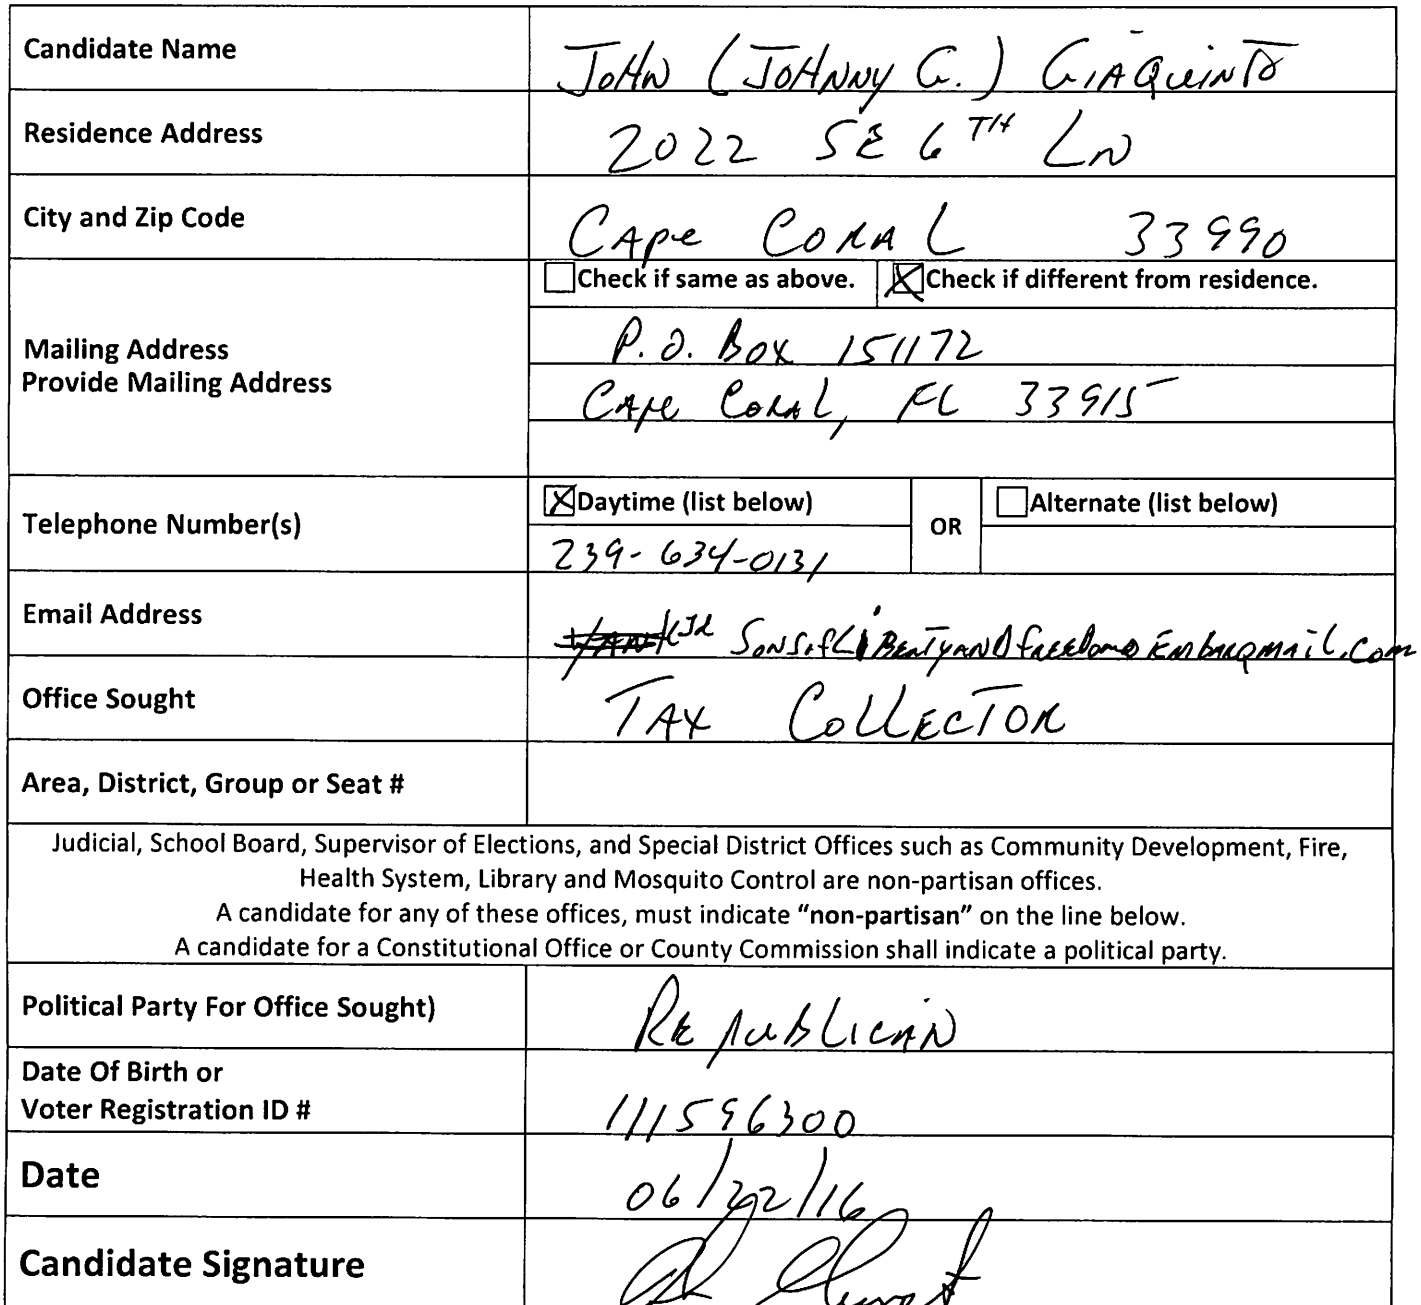 Candidate Name JOHN (JOHNNY G.) GIAQUINTO
Residence Address 2022 SE 6TH LN
City and Zip Code CApe CORAL 33990
Check if same as above. Check if different from residence.
Mailing Address
Provide Mailing Address
P.O. Box 151172
CApe CORAL, FL 33915
Telephone Number(s)
Daytime (list below) OR Alternate (list below)
239-634-0131
Email Address SonsofLiBertyANDfreedom@Embarqmail.com
Office Sought TAX COLLECTOR
Area, District, Group or Seat #
Judicial, School Board, Supervisor of Elections, and Special District Offices such as Community Development, Fire,
Health System, Library and Mosquito Control are non-partisan offices.
A candidate for any of these offices, must indicate “non-partisan” on the line below.
A candidate for a Constitutional Office or County Commission shall indicate a political party.
Political Party For Office Sought) REpUBLICAN
Date Of Birth or
Voter Registration ID # 111596300
Date 06/22/16
Candidate Signature